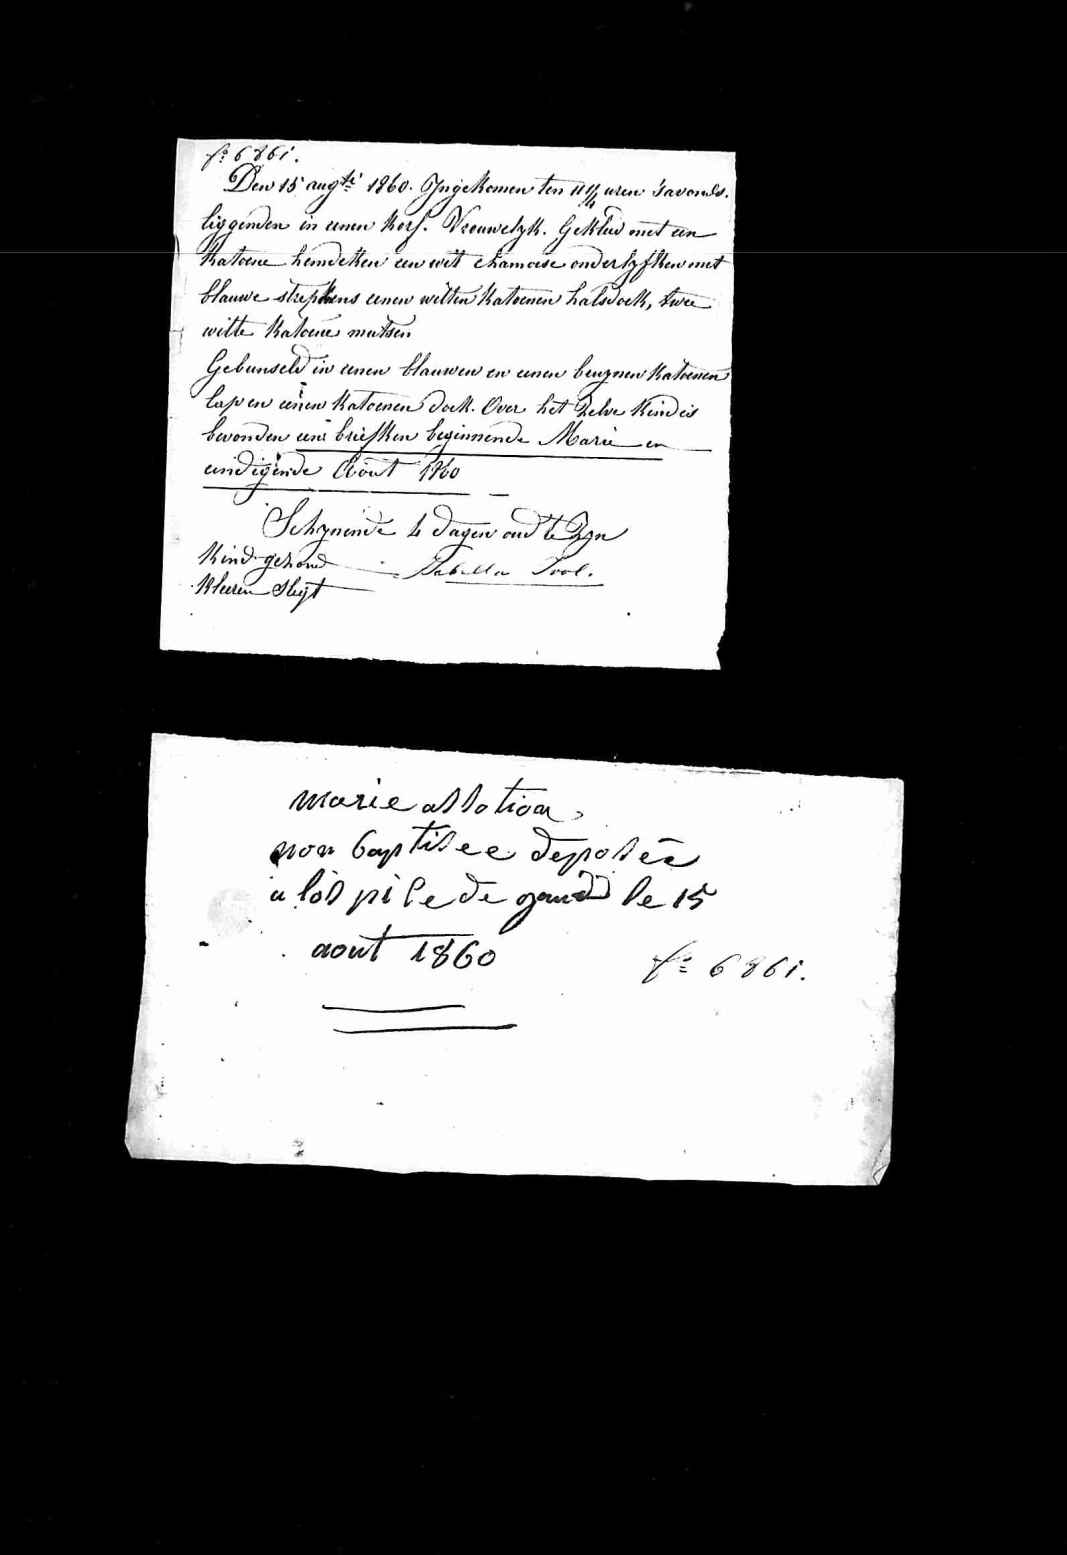 fo 6861.
Den 15 augti 1860. Yngekomen ten 11 1/4 uren 's avonds.
liggenden in eenen korf. Vrouwelyk. Gekleed met een
katoene hemdeken een wit chamoise onderlyfken met
blauwe strepkens eenen witten katoenen halsdoek, twee
witte katoene mutsen
Gebunseld in eenen blauwen en eenen bruynen katoenen
lap en eenen katoenen doek. Over het zelve kind is
bevonden een briefken beginnende Marie en
eindigende Août 1860
Schynende 4 dagen oud te zyn
Kind gezond Isabella
Kleeren Slegt
marie assotion
non baptisee deposée
a lospice de gand le 15
aout 1860
fo 6861.